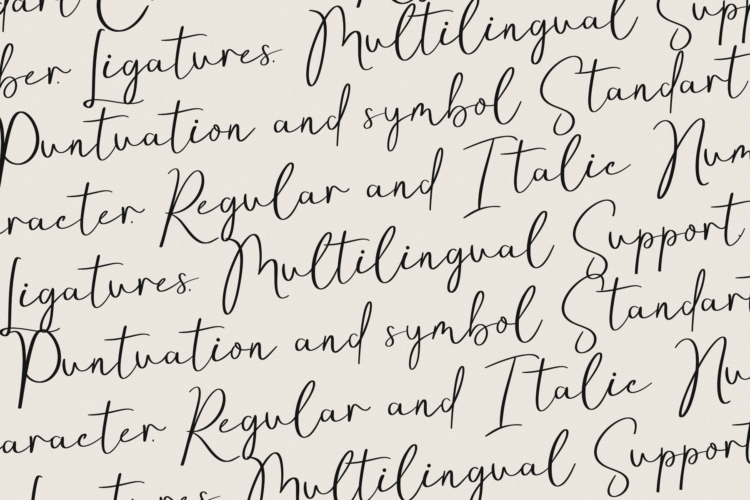 Multilingual Supp
ber. Ligatures.
Puntuation and symbol Standart
racter. Regular and Italic Num
Ligatures. Multilingual Support
Puntuation and symbol Standart
aracter. Regular and Italic Nu
Multilingual Support